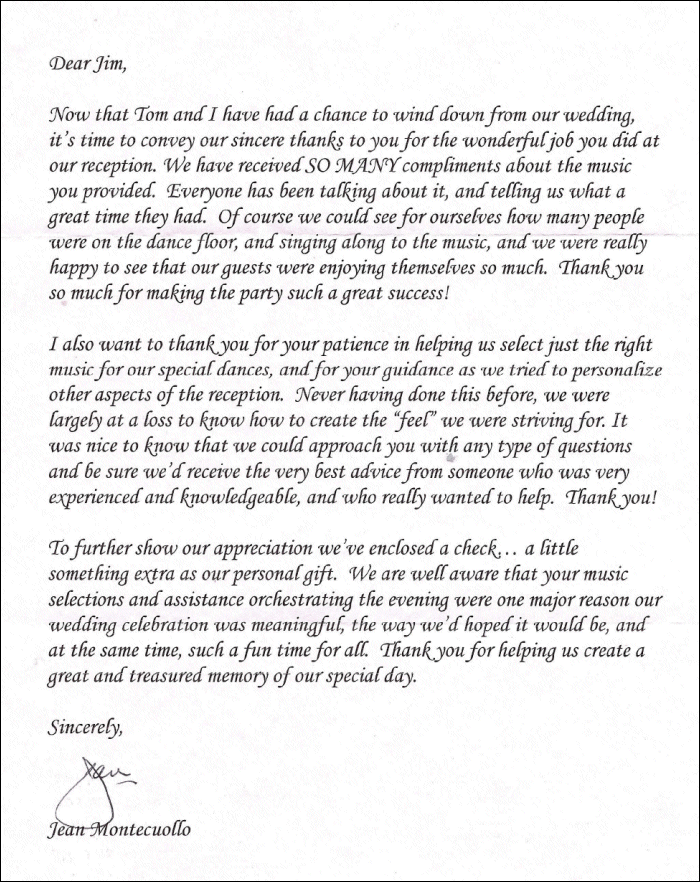 Dear Jim,
Now that Tom and I have had a chance to wind down from our wedding,
it's time to convey our sincere thanks to you for the wonderful job you did at
our reception. We have received SO MANY compliments about the music
you provided. Everyone has been talking about it, and telling us what a
great time they had. Of course we could see for ourselves how many people
were on the dance floor, and singing along to the music, and we were really
happy to see that our guests were enjoying themselves so much. Thank you
so much for making the party such a great success!
I also want to thank you for your patience in helping us select just the right
music for our special dances, and for your guidance as we tried to personalize
other aspects of the reception. Never having done this before, we were
largely at a loss to know how to create the “feel” we were striving for. It
was nice to know that we could approach you with any type of questions
and be sure we'd receive the very best advice from someone who was very
experienced and knowledgeable, and who really wanted to help. Thank you!
To further show our appreciation we've enclosed a check… a little
something extra as our personal gift. We are well aware that your music
selections and assistance orchestrating the evening were one major reason our
wedding celebration was meaningful, the way we'd hoped it would be, and
at the same time, such a fun time for all. Thank you for helping us create a
great and treasured memory of our special day.
Sincerely,
Jean
Jean Montecuollo